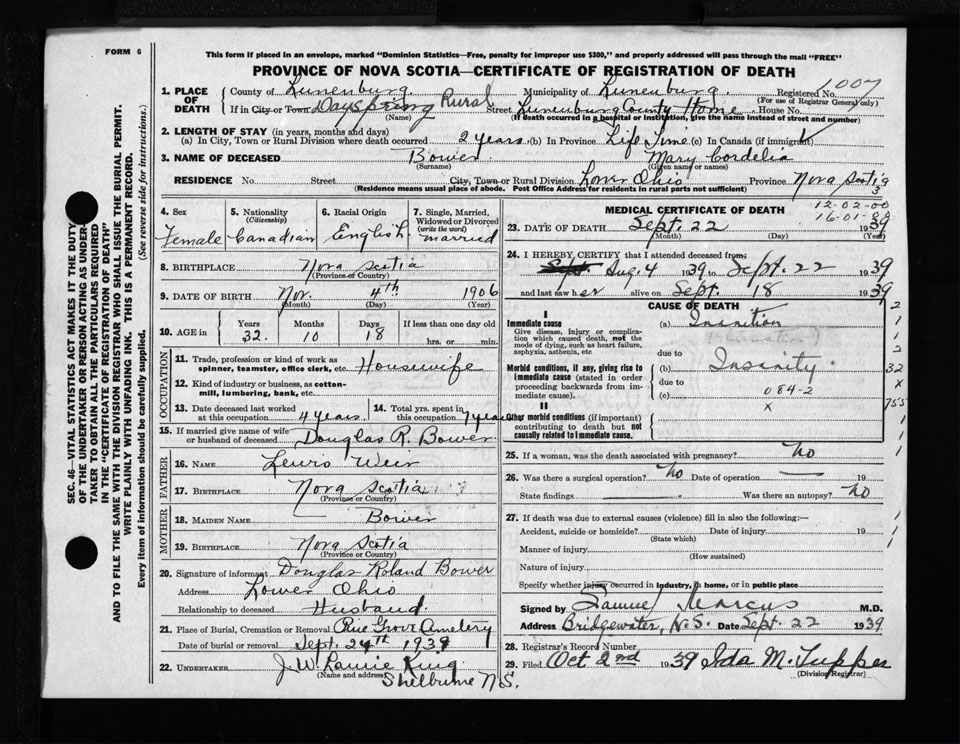 FORM 6
This form if placed in an envelope, marked "Dominion Statistics—Free, penalty for improper use $300," and properly addressed will pass through the mail "FREE"
PROVINCE OF NOVA SCOTIA—CERTIFICATE OF REGISTRATION OF DEATH
1007
1. PLACE OF DEATH County of Lunenburg Municipality of Lunenburg Registered No.
(For use of Registrar General only)
If in City or Town Dayspring Rural Street Lunenburg County Home House No.
(Name) (If death occurred in a hospital or institution, give the name instead of street and number)
2. LENGTH OF STAY (in years, months and days)
(a) In City, Town or Rural Division where death occurred 2 years (b) In Province Life Time (c) In Canada (if immigrant)
3. NAME OF DECEASED Bower Mary Cordelia
(Surname) (Given name or names)
RESIDENCE No. Street City, Town or Rural Division Lower Ohio Province Nova Scotia
(Residence means usual place of abode. Post Office Address for residents in rural parts not sufficient)
3
4. Sex Female
5. Nationality (Citizenship) Canadian
6. Racial Origin English
7. Single, Married, Widowed or Divorced (write the word) married
8. BIRTHPLACE Nova Scotia
(Province or Country)
9. DATE OF BIRTH Nov. 4th 1906
(Month) (Day) (Year)
10. AGE in Years 32 Months 10 Days 18 If less than one day hrs. or min.
OCCUPATION
11. Trade, profession or kind of work as spinner, teamster, office clerk, etc. Housewife
12. Kind of industry or business, as cotton-mill, lumbering, bank, etc.
13. Date deceased last worked at this occupation 4 years
14. Total yrs. spent in this occupation 7 years
15. If married give name of wife or husband of deceased Douglas R. Bower
FATHER
16. NAME Lewis Weir
17. BIRTHPLACE Nova Scotia
(Province or Country)
MOTHER
18. MAIDEN NAME Bower
19. BIRTHPLACE Nova Scotia
(Province or Country)
20. Signature of informant Douglas Roland Bower
Address Lower Ohio
Relationship to deceased Husband
21. Place of Burial, Cremation or Removal Pine Grove Cemetery
Date of burial or removal Sept. 24th 1939
22. UNDERTAKER
(Name and address)
Shelburne N.S.
MEDICAL CERTIFICATE OF DEATH
12-02-00
23. DATE OF DEATH Sept. 22 1939
(Month) (Day) (Year)
24. I HEREBY CERTIFY that I attended deceased from:
Sept. Aug. 4 1939 to Sept. 22 1939
and last saw her alive on Sept. 18 1939
CAUSE OF DEATH
I
Immediate cause (a) Inanition
(Starvation)
Give disease, injury or complication which caused death, not the mode of dying, such as heart failure, asphyxia, asthenia, etc
due to
Morbid conditions, if any, giving rise to immediate cause (stated in order proceeding backwards from immediate cause).
(b) Insanity
due to
(c) 084-2
x
II
Other morbid conditions (if important) contributing to death but not causally related to immediate cause.
2
1
1
2
32
x
755
1
1
25. If a woman, was the death associated with pregnancy? No
26. Was there a surgical operation? No Date of operation —
State findings — Was there an autopsy? No
27. If death was due to external causes (violence) fill in also the following:—
Accident, suicide or homicide? Date of injury 19
(State which)
Manner of injury
(How sustained)
Nature of injury
Specify whether injury occurred in industry, in home, or in public place
Signed by Samuel Marcus M.D.
Address Bridgewater, N.S. Date Sept. 22 1939
28. Registrar's Record Number
29. Filed Oct 2nd 1939 Ida M. Tupper
(Division Registrar)
SEC. 46—VITAL STATISTICS ACT MAKES IT THE DUTY
OF THE UNDERTAKER OR PERSON ACTING AS UNDERTAKER TO OBTAIN ALL THE PARTICULARS REQUIRED
IN THE "CERTIFICATE OF REGISTRATION OF DEATH"
AND TO FILE THE SAME WITH THE DIVISION REGISTRAR WHO SHALL ISSUE THE BURIAL PERMIT.
WRITE PLAINLY WITH UNFADING INK. THIS IS A PERMANENT RECORD.
Every item of information should be carefully supplied. (See reverse side for instructions.)